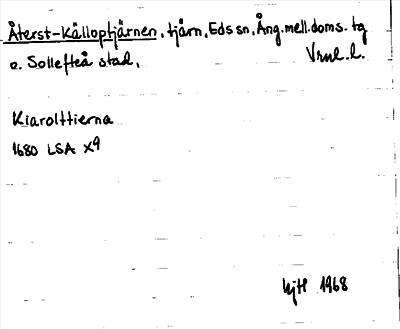 Återst-Källoptjärnen, tjärn, Eds sn, Ång. mell. doms. tg
o. Sollefteå stad,
Vrml. l.
Kiarolttierna
1680 LSA X9
HjH 1968